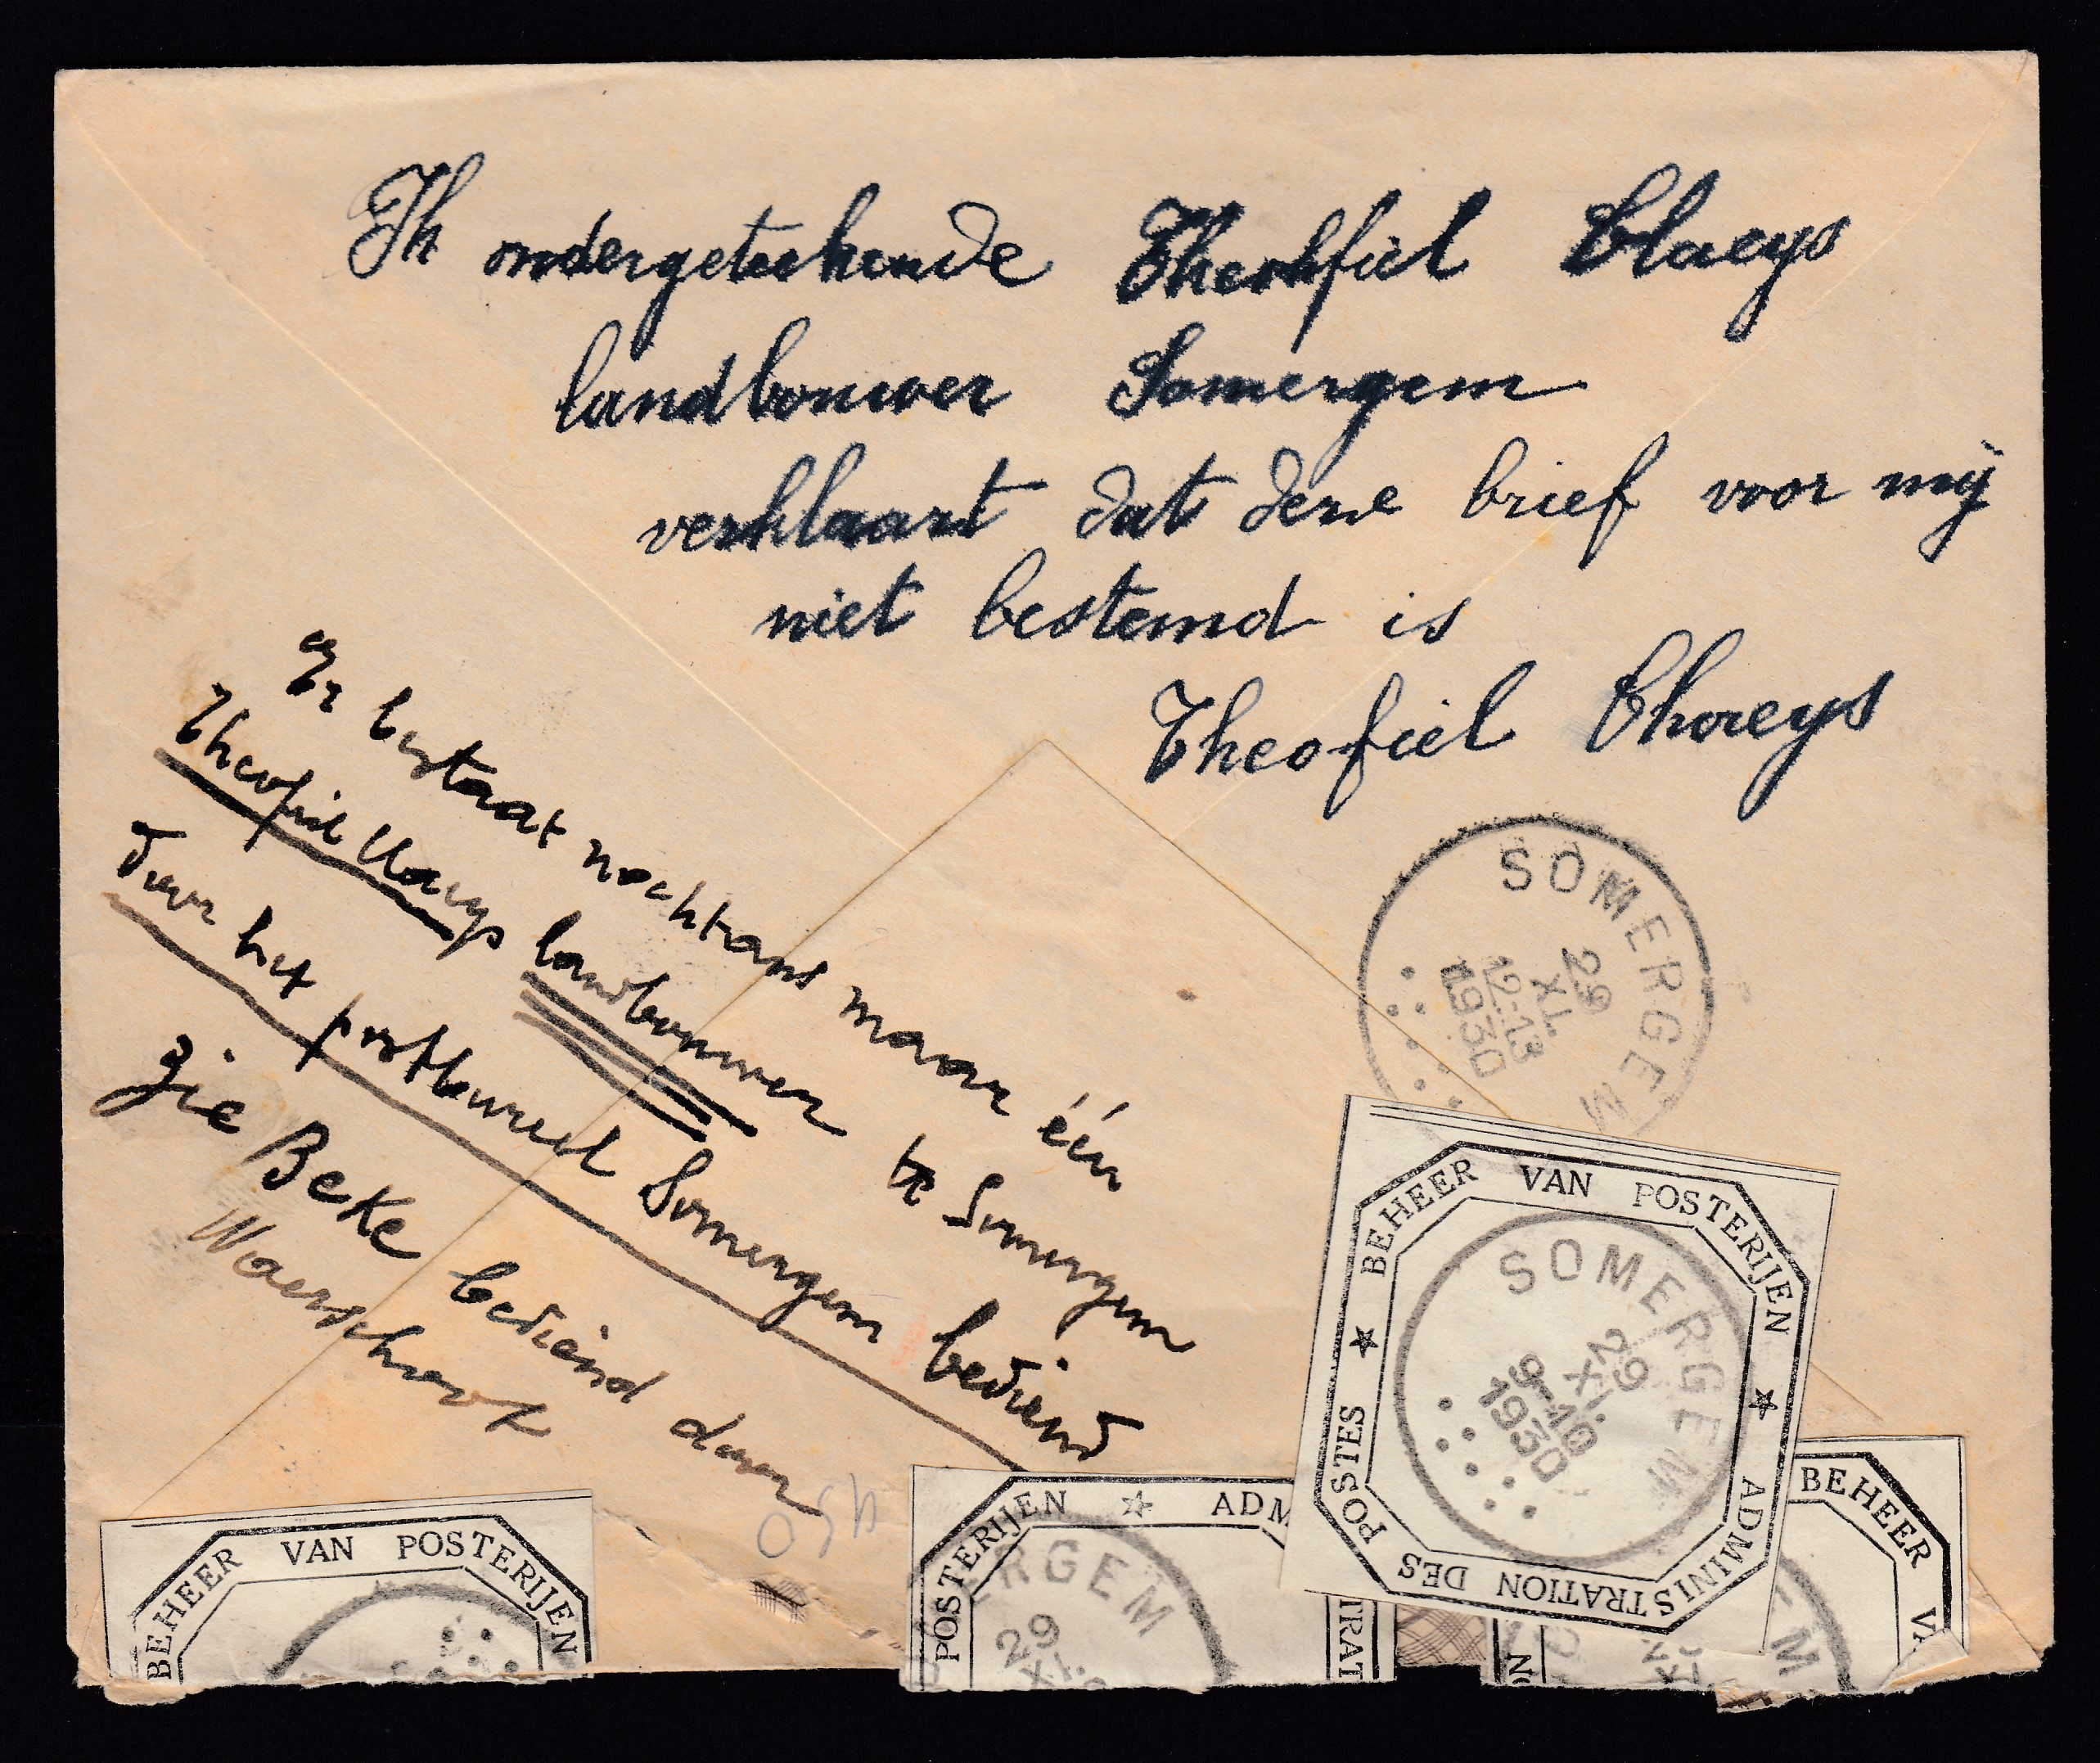 Ik ondergeteekende Theofiel Claeys
landbouwer Somergem
verklaart dat deze brief voor mij
niet bestemd is
Theofiel Claeys
er bestaat nochtans maar één
Theofiel Claeys landbouwer te Somergem
door het postbureel Somergem bediend
zie Beke bediend door
Waerschoot
950
SOMERGEM
29
XI.
12-13
1930
BEHEER VAN POSTERIJEN ★ ADMINISTRATION DES POSTES ★
SOMERGEM
29
XI.
9-10
1930
BEHEER VAN POSTERIJEN
POSTERIJEN ☆ ADM
TRAT
ERGEM
29
XI.
BEHEER VA